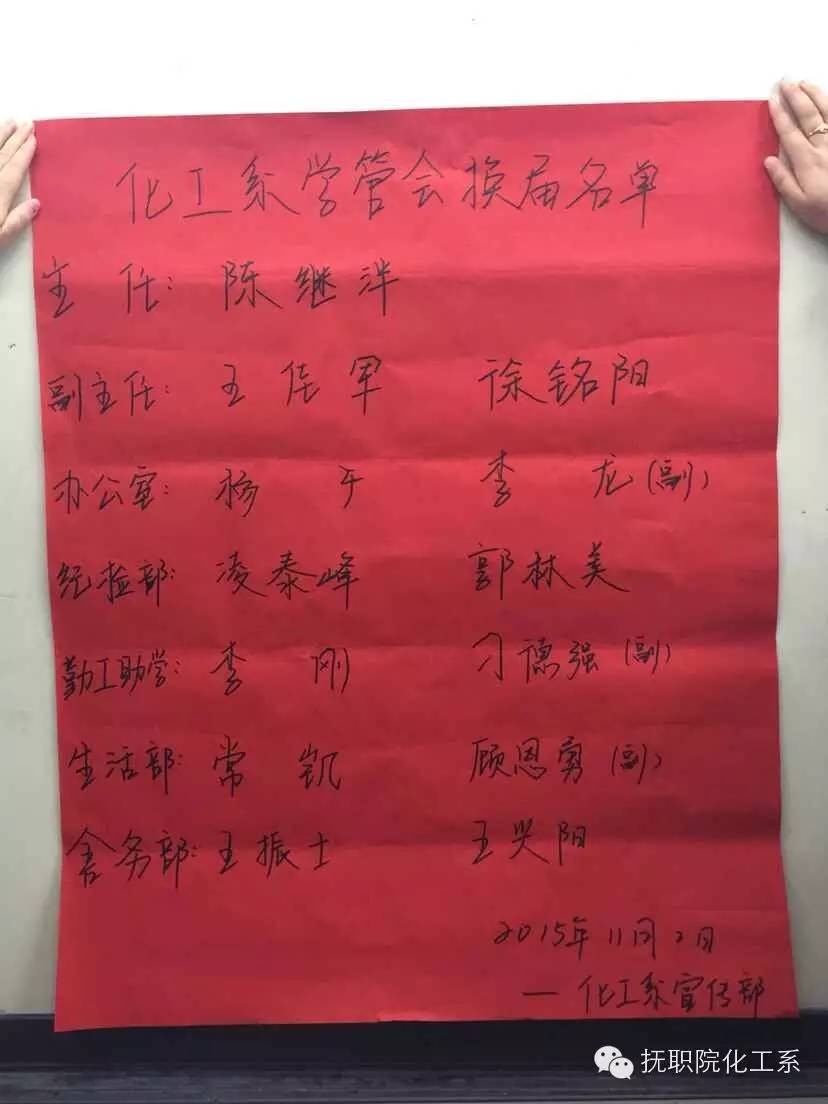 化工系学管会换届名单
主 任: 陈继洋
副主任: 王佳军 徐铭阳
办公室: 杨 于 李 龙(副)
经检部: 凌泰峰 郭林美
勤工助学: 李 刚 刁德强(副)
生活部: 常 凯 顾恩勇(副)
舍务部: 王振士 王 阳
2015年11月2日
— 化工系宣传部
抚职院化工系